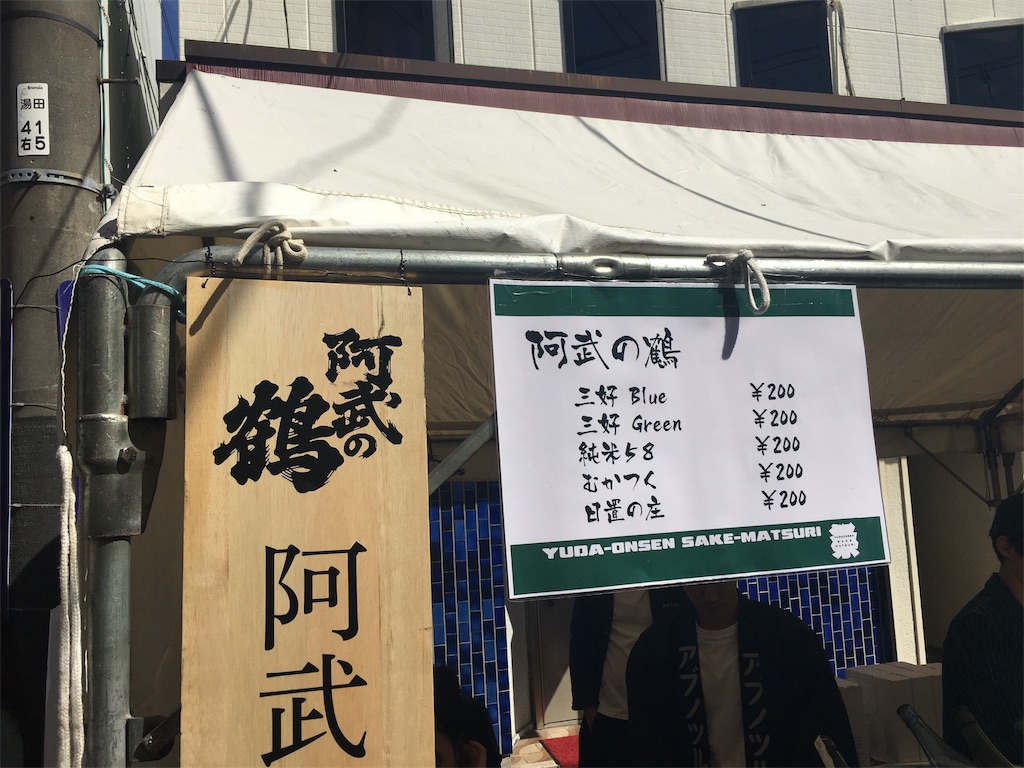 湯田
41
右5
阿武の
鶴
阿武
阿武の鶴
三好 Blue ¥200
三好 Green ¥200
純米58 ¥200
むかつく ¥200
日置の庄 ¥200
YUDA-ONSEN SAKE-MATSURI
アブノツル
アブノツル